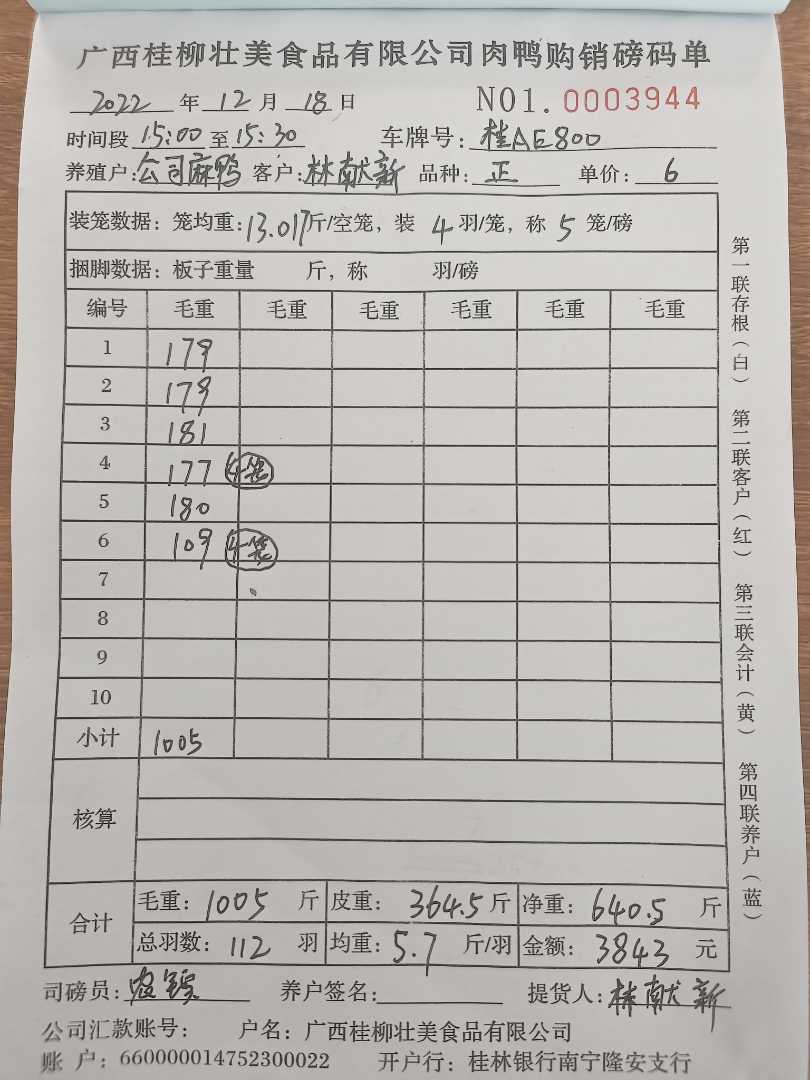 广西桂柳壮美食品有限公司肉鸭购销磅码单
2022 年 12 月 18 日 NO1. 0003944
时间段 15:00 至 15:30 车牌号: 桂AE800
养殖户: 公司麻鸭 客户: 林献新 品种: 正 单价: 6
装笼数据: 笼均重: 13.017 斤/空笼, 装 4 羽/笼, 称 5 笼/磅
捆脚数据: 板子重量 斤, 称 羽/磅
编号 毛重 毛重 毛重 毛重 毛重 毛重
1 179
2 179
3 181
4 177 4笼
5 180
6 109 4笼
7
8
9
10
小计 1005
核算
合计 毛重: 1005 斤 皮重: 364.5 斤 净重: 640.5 斤
总羽数: 112 羽 均重: 5.7 斤/羽 金额: 3843 元
司磅员: 养户签名: 提货人: 林献新
公司汇款账号: 户名: 广西桂柳壮美食品有限公司
账户: 660000014752300022 开户行: 桂林银行南宁隆安支行
第一联存根(白) 第二联客户(红) 第三联会计(黄) 第四联养户(蓝)